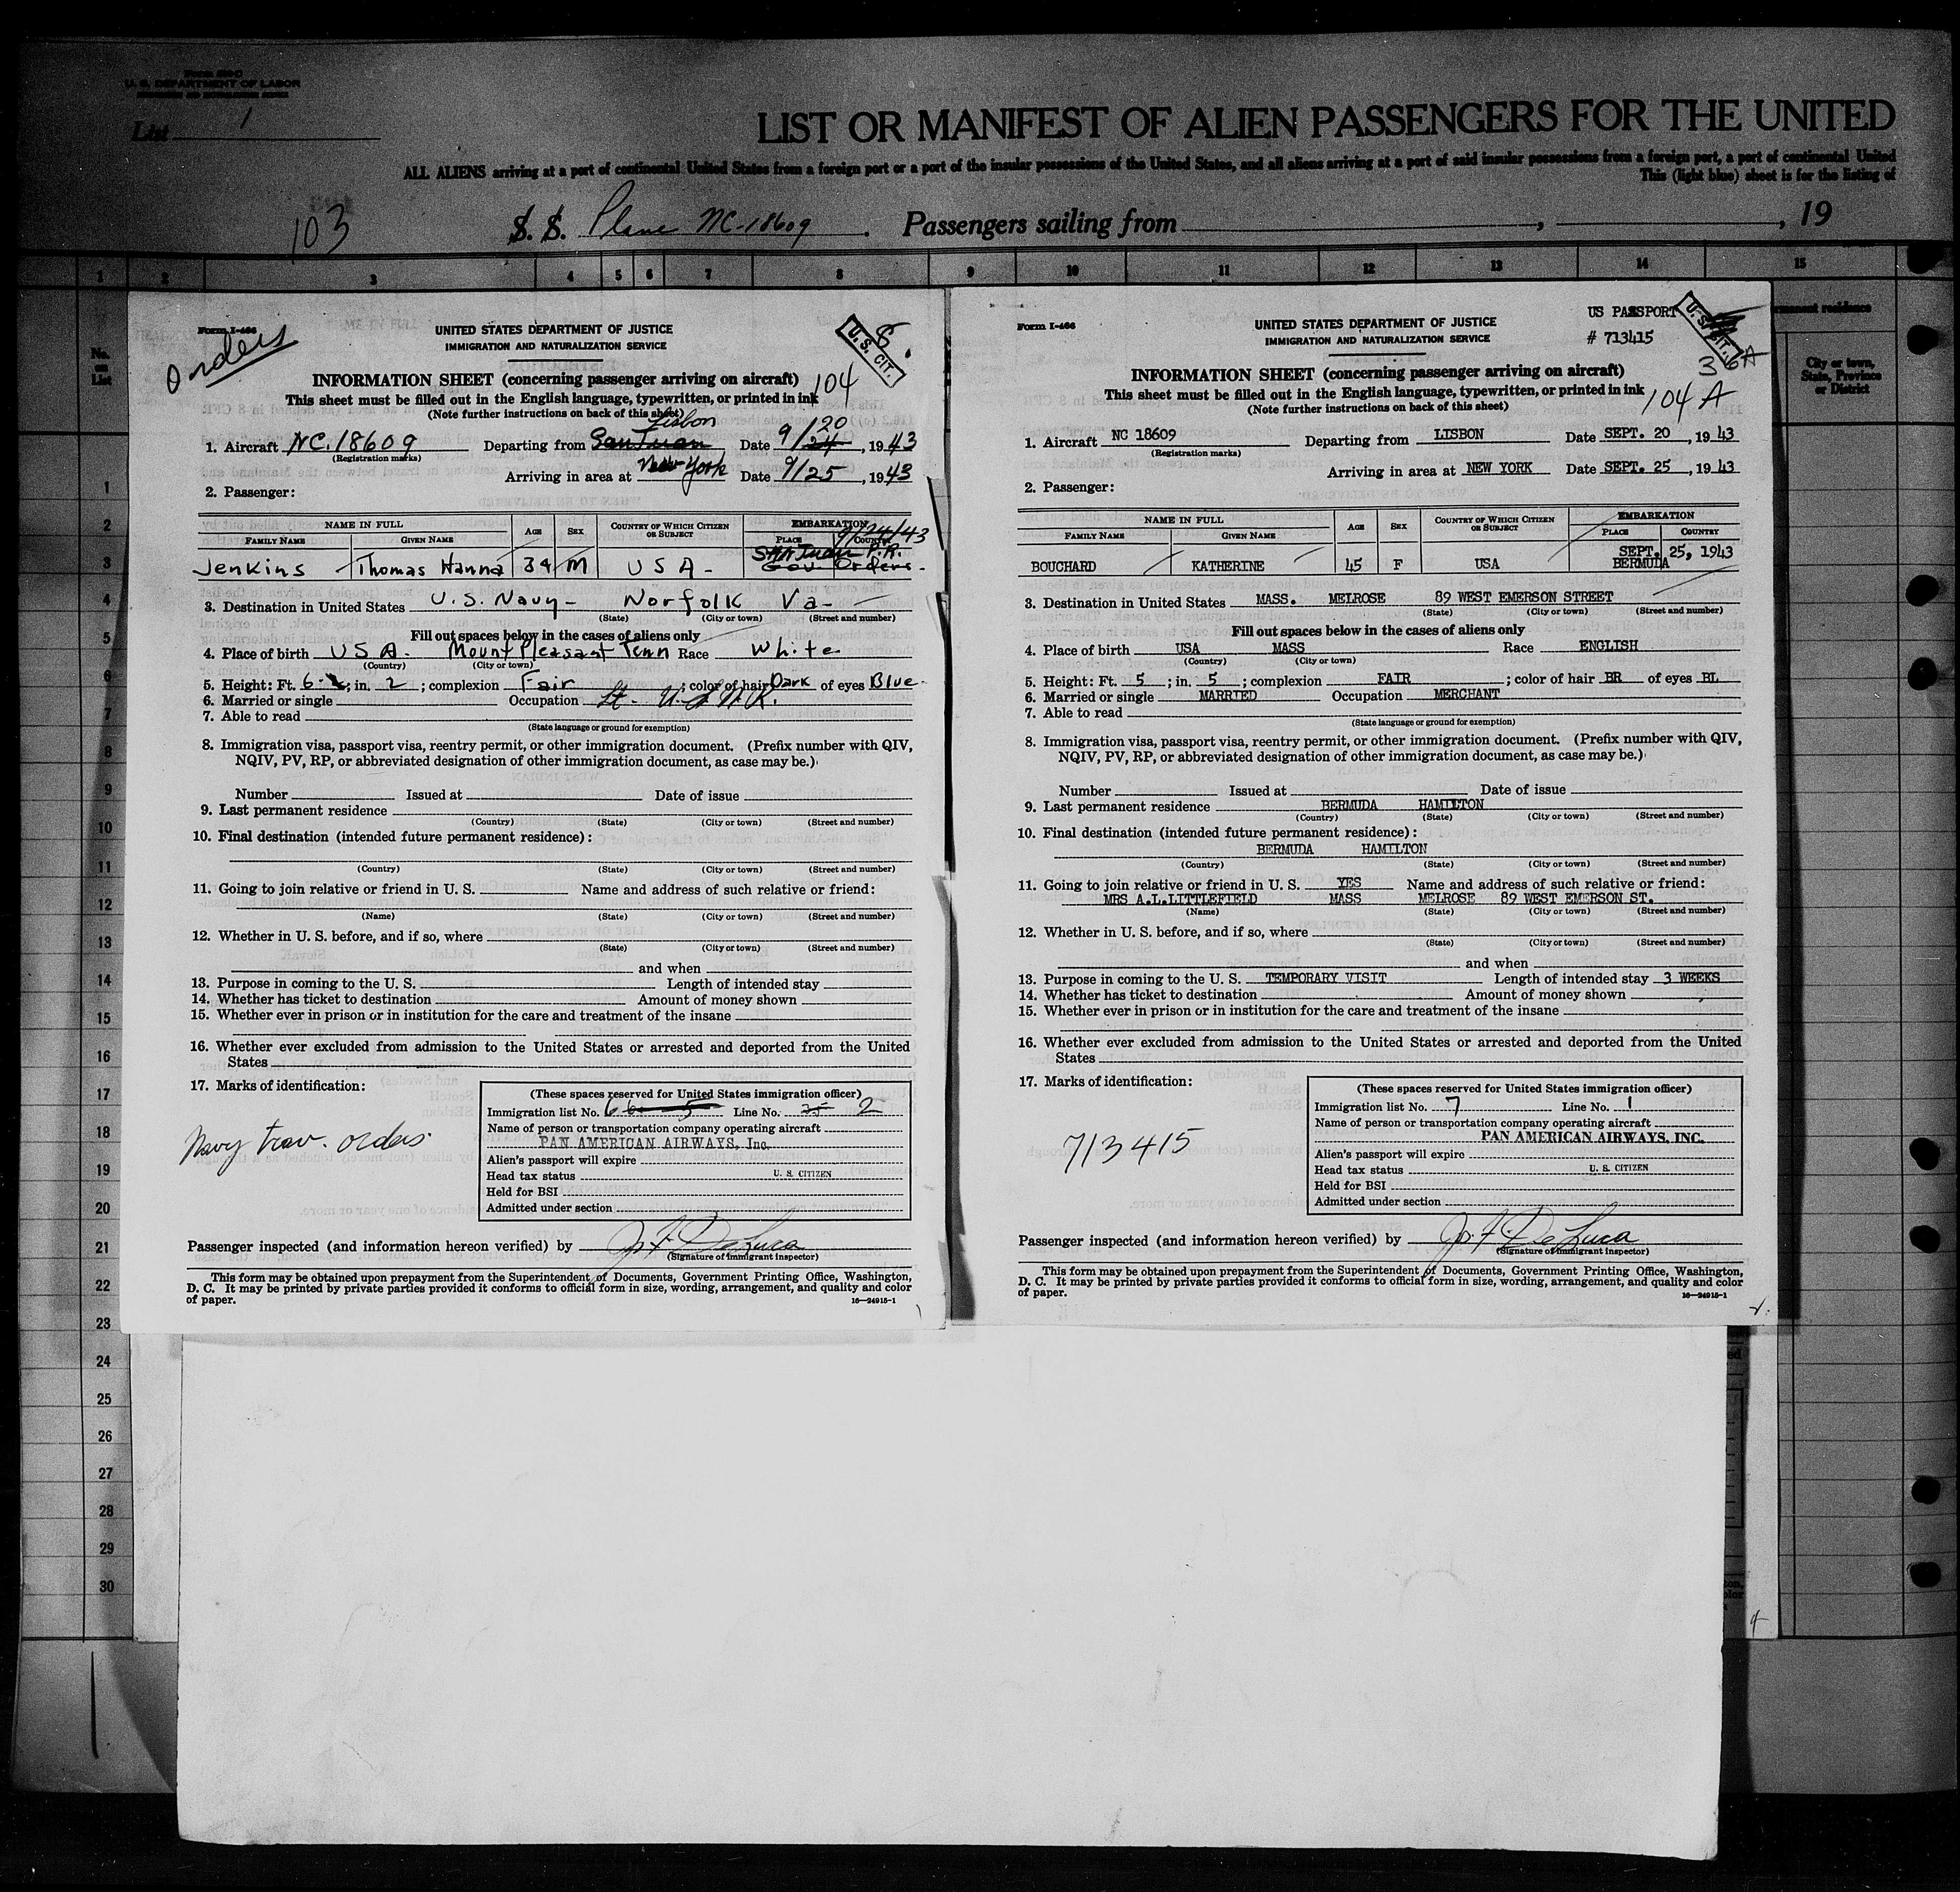 Form 500-C
U. S. DEPARTMENT OF LABOR
List 1
LIST OR MANIFEST OF ALIEN PASSENGERS FOR THE UNITED
ALL ALIENS arriving at a port of continental United States from a foreign port or a port of the insular possessions of the United States, and all aliens arriving at a port of said insular possessions from a foreign port, a port of continental United
This (light blue) sheet is for the listing of
103
S. S. Plane NC-18609. Passengers sailing from , , 19
1 2 3 4 5 6 7 8 9 10 11 12 13 14 15
No. on List
City or town, State, Province or District
1
2
3
4
5
6
7
8
9
10
11
12
13
14
15
16
17
18
19
20
21
22
23
24
25
26
27
28
29
30
Form I-466
Orders
UNITED STATES DEPARTMENT OF JUSTICE
IMMIGRATION AND NATURALIZATION SERVICE
U. S. CIT.
INFORMATION SHEET (concerning passenger arriving on aircraft)
104
This sheet must be filled out in the English language, typewritten, or printed in ink
(Note further instructions on back of this sheet)
Lisbon 20
1. Aircraft NC.18609 Departing from San Juan Date 9/24, 1943
(Registration marks)
Arriving in area at New York Date 9/25, 1943
2. Passenger:
NAME IN FULL AGE SEX COUNTRY OF WHICH CITIZEN OR SUBJECT EMBARKATION
9/24/43
FAMILY NAME GIVEN NAME PLACE COUNTRY
San Juan P.R.
Jenkins Thomas Hanna 34 M USA- Gov. Orders-
3. Destination in United States U.S. Navy- Norfolk Va-
(State) (City or town) (Street and number)
Fill out spaces below in the cases of aliens only
4. Place of birth USA. Mount Pleasant Tenn Race White
(Country) (City or town)
5. Height: Ft. 6-; in. 2; complexion Fair; color of hair Dark of eyes Blue-
6. Married or single Occupation Lt. U.S.N.R.
7. Able to read
(State language or ground for exemption)
8. Immigration visa, passport visa, reentry permit, or other immigration document. (Prefix number with QIV,
NQIV, PV, RP, or abbreviated designation of other immigration document, as case may be.)
Number Issued at Date of issue
9. Last permanent residence
(Country) (State) (City or town) (Street and number)
10. Final destination (intended future permanent residence):
(Country) (State) (City or town) (Street and number)
11. Going to join relative or friend in U. S. Name and address of such relative or friend:
(Name) (State) (City or town) (Street and number)
12. Whether in U. S. before, and if so, where
(State) (City or town) (Street and number)
and when
13. Purpose in coming to the U. S. Length of intended stay
14. Whether has ticket to destination Amount of money shown
15. Whether ever in prison or in institution for the care and treatment of the insane
16. Whether ever excluded from admission to the United States or arrested and deported from the United
States
17. Marks of identification:
Navy trav. orders.
(These spaces reserved for United States immigration officer)
Immigration list No. 6 Line No. 2
Name of person or transportation company operating aircraft
PAN AMERICAN AIRWAYS, Inc.
Alien's passport will expire
Head tax status U. S. CITIZEN
Held for BSI
Admitted under section
Passenger inspected (and information hereon verified) by Jos. F. De Luca
(Signature of immigrant inspector)
This form may be obtained upon prepayment from the Superintendent of Documents, Government Printing Office, Washington,
D. C. It may be printed by private parties provided it conforms to official form in size, wording, arrangement, and quality and color
of paper.
16—24915-1
Form I-466
US PASSPORT
# 713415
UNITED STATES DEPARTMENT OF JUSTICE
IMMIGRATION AND NATURALIZATION SERVICE
U. S. CIT.
36A
INFORMATION SHEET (concerning passenger arriving on aircraft)
104 A
This sheet must be filled out in the English language, typewritten, or printed in ink
(Note further instructions on back of this sheet)
1. Aircraft NC 18609 Departing from LISBON Date SEPT. 20, 1943
(Registration marks)
Arriving in area at NEW YORK Date SEPT. 25, 1943
2. Passenger:
NAME IN FULL AGE SEX COUNTRY OF WHICH CITIZEN OR SUBJECT EMBARKATION
FAMILY NAME GIVEN NAME PLACE COUNTRY
SEPT. 25, 1943
BOUCHARD KATHERINE 45 F USA BERMUDA
3. Destination in United States MASS. MELROSE 89 WEST EMERSON STREET
(State) (City or town) (Street and number)
Fill out spaces below in the cases of aliens only
4. Place of birth USA MASS Race ENGLISH
(Country) (City or town)
5. Height: Ft. 5; in. 5; complexion FAIR; color of hair BR of eyes BL
6. Married or single MARRIED Occupation MERCHANT
7. Able to read
(State language or ground for exemption)
8. Immigration visa, passport visa, reentry permit, or other immigration document. (Prefix number with QIV,
NQIV, PV, RP, or abbreviated designation of other immigration document, as case may be.)
Number Issued at Date of issue
9. Last permanent residence BERMUDA HAMILTON
(Country) (State) (City or town) (Street and number)
10. Final destination (intended future permanent residence):
BERMUDA HAMILTON
(Country) (State) (City or town) (Street and number)
11. Going to join relative or friend in U. S. YES Name and address of such relative or friend:
MRS A.L.LITTLEFIELD MASS MELROSE 89 WEST EMERSON ST.
(Name) (State) (City or town) (Street and number)
12. Whether in U. S. before, and if so, where
(State) (City or town) (Street and number)
and when
13. Purpose in coming to the U. S. TEMPORARY VISIT Length of intended stay 3 WEEKS
14. Whether has ticket to destination Amount of money shown
15. Whether ever in prison or in institution for the care and treatment of the insane
16. Whether ever excluded from admission to the United States or arrested and deported from the United
States
17. Marks of identification:
713415
(These spaces reserved for United States immigration officer)
Immigration list No. 7 Line No. 1
Name of person or transportation company operating aircraft
PAN AMERICAN AIRWAYS, INC.
Alien's passport will expire
Head tax status U. S. CITIZEN
Held for BSI
Admitted under section
Passenger inspected (and information hereon verified) by Jos. F. De Luca
(Signature of immigrant inspector)
This form may be obtained upon prepayment from the Superintendent of Documents, Government Printing Office, Washington,
D. C. It may be printed by private parties provided it conforms to official form in size, wording, arrangement, and quality and color
of paper.
16—24915-1